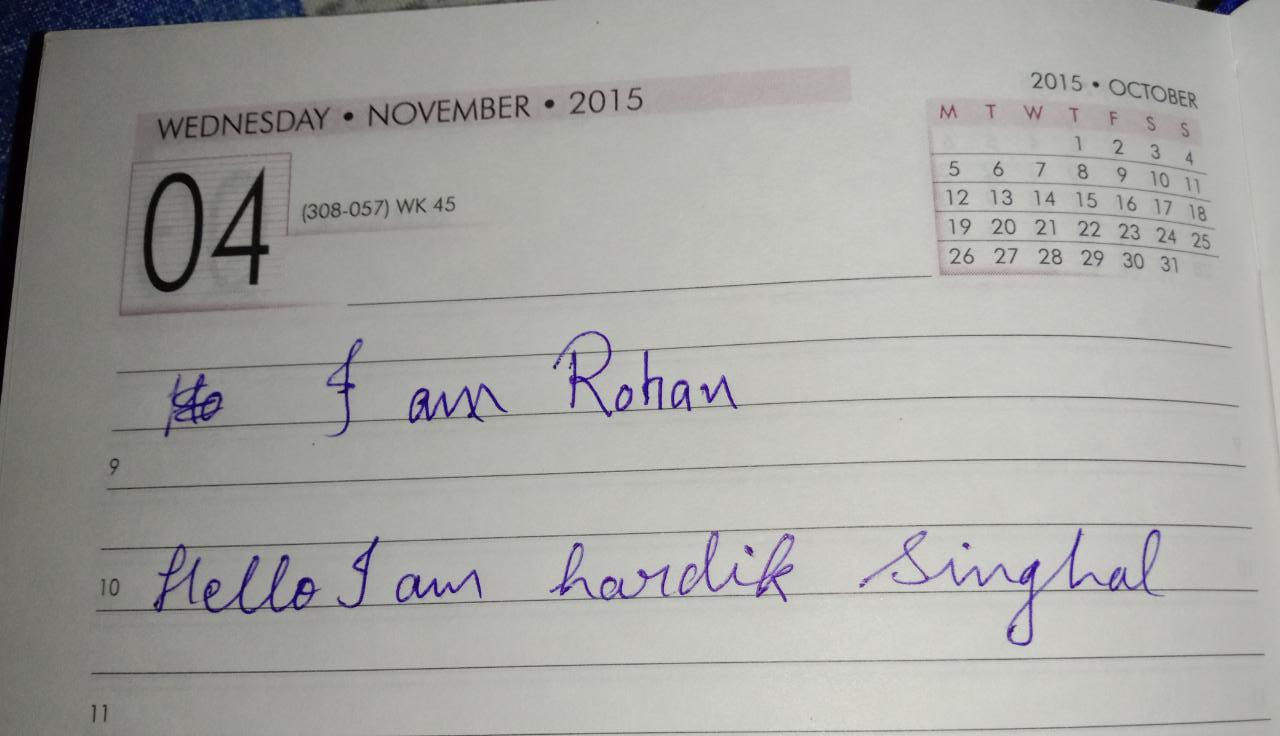 WEDNESDAY • NOVEMBER • 2015
04
(308-057) WK 45
2015 • OCTOBER
M T W T F S S
1 2 3 4
5 6 7 8 9 10 11
12 13 14 15 16 17 18
19 20 21 22 23 24 25
26 27 28 29 30 31
I am Rohan
9
10 Hello I am hardik Singhal
11